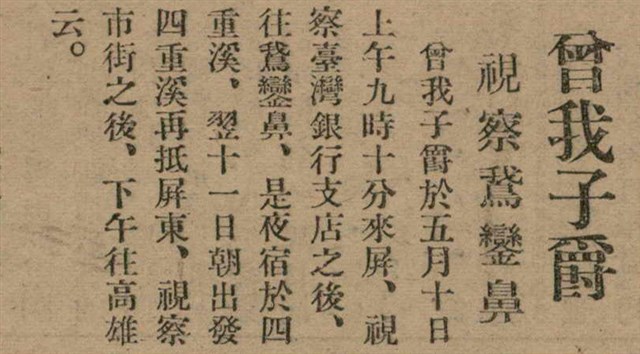 曾我子爵
視察鵞鑾鼻
曾我子爵於五月十日
上午九時十分來屏、視
察臺灣銀行支店之後、
往鵞鑾鼻、是夜宿於四
重溪、翌十一日朝出發
四重溪再抵屏東、視察
市街之後、下午往高雄
云。